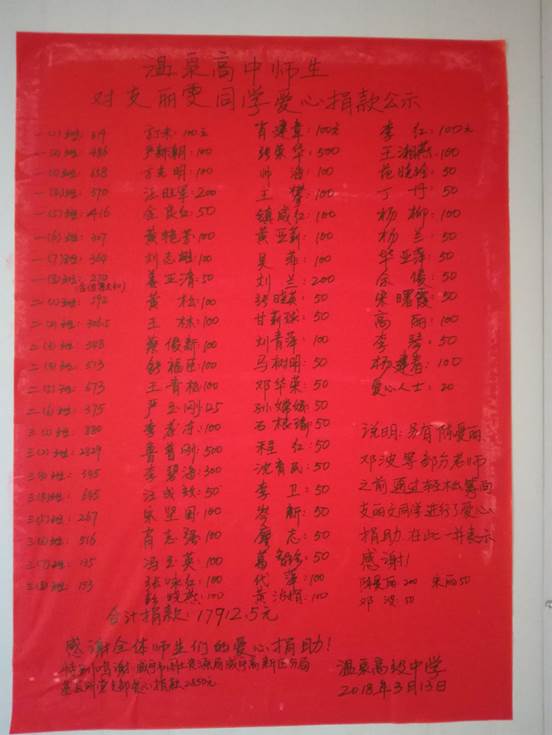 温泉高中师生
对支丽雯同学爱心捐款公示
一(1)班: 肖建章: 100元 李红: 100元
一(2)班: 486 严新潮: 100 张荣华: 500 王湘燕: 100
一(3)班: 帅海: 100 范晓玲: 50
一(4)班: 370 汪旺军: 200 王攀: 100 丁丹: 50
一(5)班: 416 余良红: 50 镇咸红: 100 杨柳: 100
一(6)班: 307 黄艳芳: 100 黄亚莉: 100 杨兰: 50
一(7)班: 364 刘志雄: 100 吴菲: 100 华亚萍: 50
一(8)班: 270 姜正清: 50 刘兰: 200 余俊: 50
二(1)班: 592 黄松: 100 张晓英: 50 宋曙霞: 50
二(2)班: 306.5 王林: 100 50 高丽: 100
二(3)班: 348 蔡俊新: 100 刘青萍: 100 李琴: 50
二(4)班: 513 舒福臣: 100 马树明: 50 100
二(5)班: 673 王青松: 100 邓华荣: 50 爱心人士: 20
二(6)班: 375 严玉刚: 25 孙嫦娥: 50
三(1)班: 880 100 石根 50
三(2)班: 2829 500 程红: 50
三(3)班: 345 李碧海: 300 沈育民: 50
三(4)班: 645 汪成效: 50 李卫: 50
三(5)班: 267 朱坚国: 100 岁新: 50
三(6)班: 516 肖志强: 100 廖志: 50
三(7)班: 135 冯玉英: 100 葛 50
三(8)班: 153 张咏红: 100 代强: 100
彭晓燕: 100 黄治娟: 100
说明: 另有陈爱丽
邓波等部分老师
之前通过轻松筹向
支丽文同学进行了爱心
捐助 在此一并表示
感谢!
陈爱丽 200 朱丽 50
邓波: 50
合计捐款: 17912.5元
感谢全体师生们的爱心捐助!
特别鸣谢: 咸宁市国土资源局咸宁高新区分局
党支部爱心捐款2850元
温泉高级中学
2018年3月13日